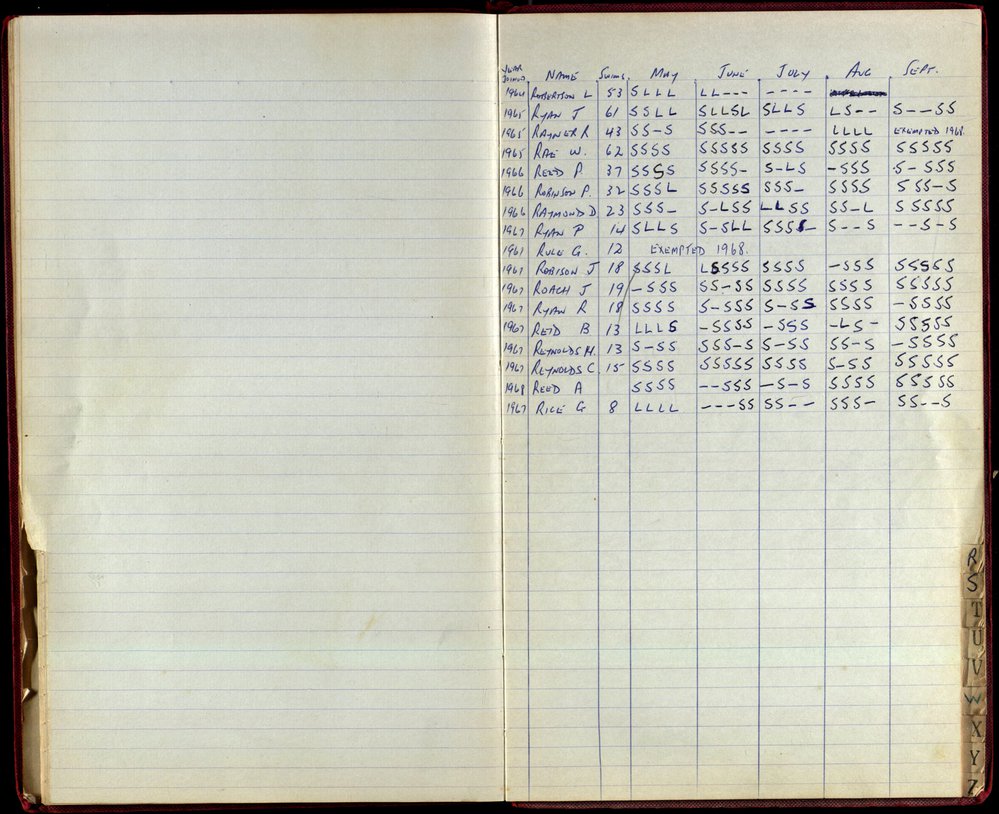 YEAR JOINED NAME SWIMS MAY JUNE JULY AUG SEPT.
1964 ROBERTSON L 53 SLLL LL--- ----
1965 RYAN J 61 SSLL SLLSL SLLS LS-- S--SS
1965 RAYNER R 43 SS-S SSS-- ---- LLLL EXEMPTED 1968.
1965 RAE W. 62 SSSS SSSSS SSSS SSSS SSSSS
1966 REED P. 37 SSSS SSSS- S-LS -SSS S-SSS
1966 ROBINSON P. 32 SSSL SSSSS SSS- SSSS SSS-S
1966 RAYMOND D 23 SSS- S-LSS LLSS SS-L SSSSS
1967 RYAN P 14 SLLS S-SLL SSS- S--S --S-S
1967 RULE G. 12 EXEMPTED 1968.
1967 ROBISON J 18 SSSL LSSSS SSSS -SSS SSSSS
1967 ROACH J 19 -SSS SS-SS SSSS SSSS SSSSS
1967 RYAN R 18 SSSS S-SSS S-SS SSSS -SSSS
1967 REID B 13 LLLS -SSSS -SSS -LS- SSSSS
1967 REYNOLDS M. 13 S-SS SSS-S S-SS SS-S -SSSS
1967 REYNOLDS C. 15 SSSS SSSSS SSSS S-SS SSSSS
1968 REED A SSSS --SSS -S-S SSSS SSSSS
1967 RICE G 8 LLLL ---SS SS-- SSS- SS--S
R
S
T
U
V
W
X
Y
Z